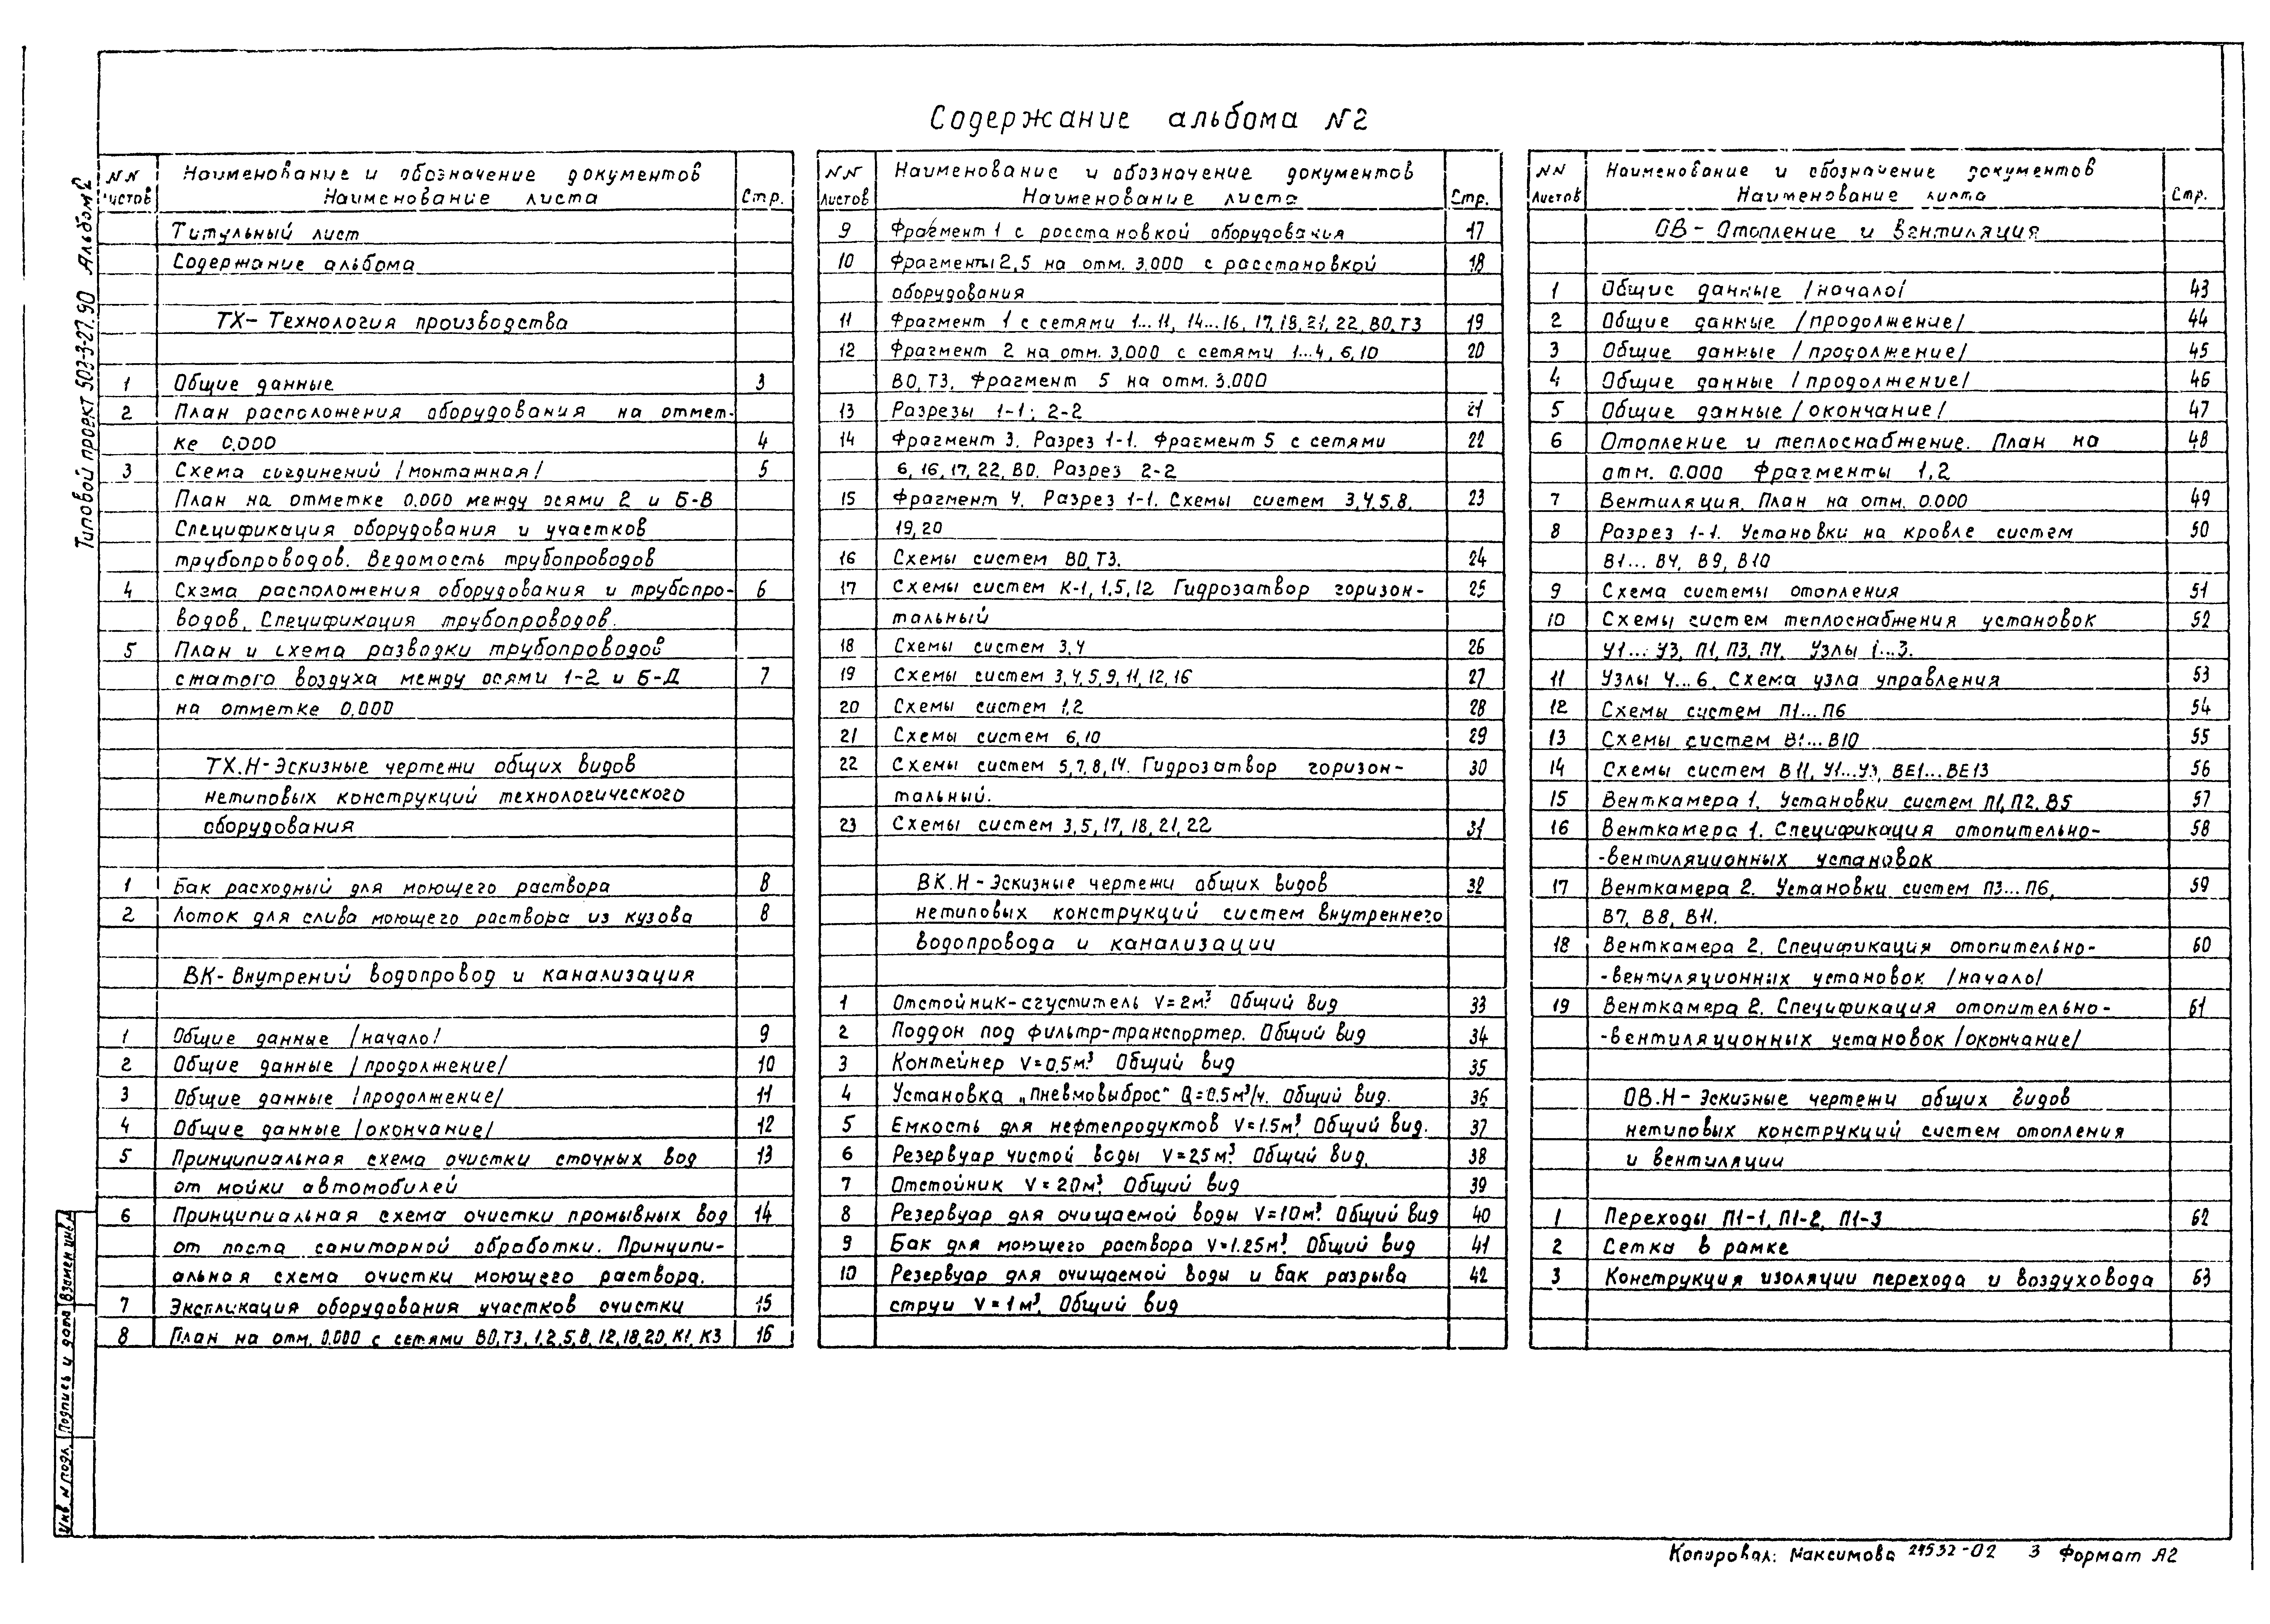 Содержание альбома N2
Типовой проект 503-3-27.90 Альбом 2
NN листов Наименование и обозначение документов Наименование листа Стр.
Титульный лист
Содержание альбома
ТХ- Технология производства
1 Общие данные 3
2 План расположения оборудования на отмет-
ке 0.000 4
3 Схема соединений /монтажная/ 5
План на отметке 0.000 между осями 2 и Б-В
Спецификация оборудования и участков
трубопроводов. Ведомость трубопроводов
4 Схема расположения оборудования и трубопро- 6
водов. Спецификация трубопроводов.
5 План и схема разводки трубопроводов
сжатого воздуха между осями 1-2 и Б-Д 7
на отметке 0,000
ТХ.Н-Эскизные чертежи общих видов
нетиповых конструкций технологического
оборудования
1 Бак расходный для моющего раствора 8
2 Лоток для слива моющего раствора из кузова 8
ВК- Внутрений водопровод и канализация
1 Общие данные /начало/ 9
2 Общие данные /продолжение/ 10
3 Общие данные /продолжение/ 11
4 Общие данные /окончание/ 12
5 Принципиальная схема очистки сточных вод 13
от мойки автомобилей
6 Принципиальная схема очистки промывных вод 14
от поста санитарной обработки. Принципи-
альная схема очистки моющего раствора.
7 Экспликация оборудования участков очистки 15
8 План на отм. 0.000 с сетями В0,Т3, 1,2,5,8, 12,18,20, К1, К3 16
NN листов Наименование и обозначение документов Наименование листа Стр.
9 Фрагмент 1 с расстановкой оборудования 17
10 Фрагменты 2,5 на отм. 3.000 с расстановкой 18
оборудования
11 Фрагмент 1 с сетями 1...11, 14...16, 17,18,21,22, В0, Т3 19
12 Фрагмент 2 на отм. 3.000 с сетями 1...4, 6,10 20
В0, Т3. Фрагмент 5 на отм. 3.000
13 Разрезы 1-1; 2-2 21
14 Фрагмент 3. Разрез 1-1. Фрагмент 5 с сетями 22
6, 16, 17, 22, В0. Разрез 2-2
15 Фрагмент 4. Разрез 1-1. Схемы систем 3,4,5,8, 23
19,20
16 Схемы систем В0, Т3. 24
17 Схемы систем К-1, 1,5,12 Гидрозатвор горизон- 25
тальный
18 Схемы систем 3,4 26
19 Схемы систем 3,4,5,9,11,12,16 27
20 Схемы систем 1,2 28
21 Схемы систем 6,10 29
22 Схемы систем 5,7,8,14. Гидрозатвор горизон- 30
тальный.
23 Схемы систем 3,5,17,18,21,22 31
ВК.Н-Эскизные чертежи общих видов 32
нетиповых конструкций систем внутреннего
водопровода и канализации
1 Отстойник-сгуститель V=2м³. Общий вид 33
2 Поддон под фильтр-транспортер. Общий вид 34
3 Контейнер V=0,5м³. Общий вид 35
4 Установка „Пневмовыброс" Q=0.5м³/ч. Общий вид. 36
5 Емкость для нефтепродуктов V=1.5м³. Общий вид. 37
6 Резервуар чистой воды V=25м³. Общий вид. 38
7 Отстойник V=20м³. Общий вид 39
8 Резервуар для очищаемой воды V=10м³. Общий вид 40
9 Бак для моющего раствора V=1.25м³. Общий вид 41
10 Резервуар для очищаемой воды и бак разрыва 42
струи V=1м³. Общий вид
NN листов Наименование и обозначение документов Наименование листа Стр.
ОВ- Отопление и вентиляция
1 Общие данные /начало/ 43
2 Общие данные /продолжение/ 44
3 Общие данные /продолжение/ 45
4 Общие данные /продолжение/ 46
5 Общие данные /окончание/ 47
6 Отопление и теплоснабжение. План на 48
отм. 0.000 Фрагменты 1,2
7 Вентиляция. План на отм. 0.000 49
8 Разрез 1-1. Установки на кровле систем 50
В1... В4, В9, В10
9 Схема системы отопления 51
10 Схемы систем теплоснабжения установок 52
У1... У3, П1, П3, П4. Узлы 1...3.
11 Узлы 4...6. Схема узла управления 53
12 Схемы систем П1... П6 54
13 Схемы систем В1... В10 55
14 Схемы систем В11, У1...У3, ВЕ1... ВЕ13 56
15 Венткамера 1. Установки систем П1, П2, В5 57
16 Венткамера 1. Спецификация отопительно- 58
-вентиляционных установок
17 Венткамера 2. Установки систем П3... П6, 59
В7, В8, В11.
18 Венткамера 2. Спецификация отопительно- 60
-вентиляционных установок /начало/
19 Венткамера 2. Спецификация отопительно- 61
-вентиляционных установок /окончание/
ОВ.Н-Эскизные чертежи общих видов
нетиповых конструкций систем отопления
и вентиляции
1 Переходы П1-1, П1-2, П1-3 62
2 Сетка в рамке
3 Конструкция изоляции перехода и воздуховода 63
Инв. N подл. Подпись и дата Взамен инв.
Копировал: Максимова 24532-02 3 Формат А2